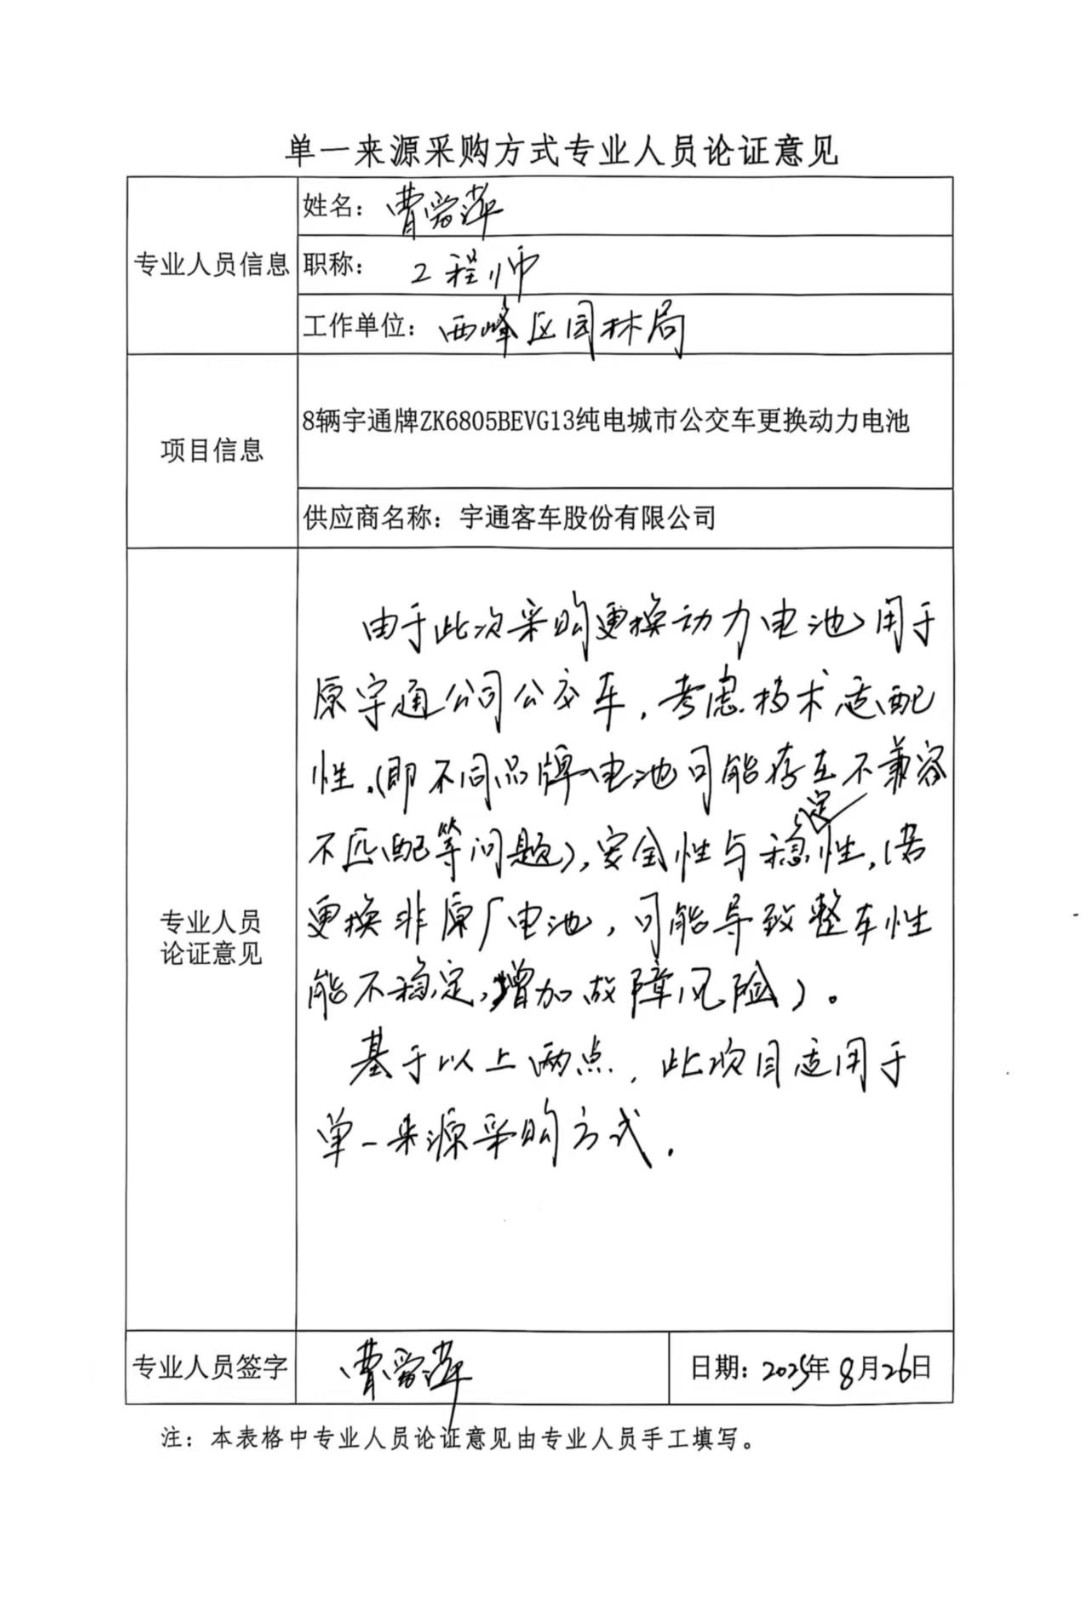 单一来源采购方式专业人员论证意见
专业人员信息
姓名：曹
职称：工程师
工作单位：西峰区园林局
项目信息
8辆宇通牌ZK6805BEVG13纯电城市公交车更换动力电池
供应商名称：宇通客车股份有限公司
专业人员
论证意见
由于此次采购更换动力电池用于
原宇通公司公交车，考虑技术适配
性，(即不同品牌电池可能存在不兼容
不匹配等问题)，安全性与稳定性，(若
更换非原厂电池，可能导致整车性
能不稳定，增加故障风险)。
基于以上两点，此次目适用于
单一来源采购方式.
专业人员签字
曹
日期：2025年8月26日
注：本表格中专业人员论证意见由专业人员手工填写。